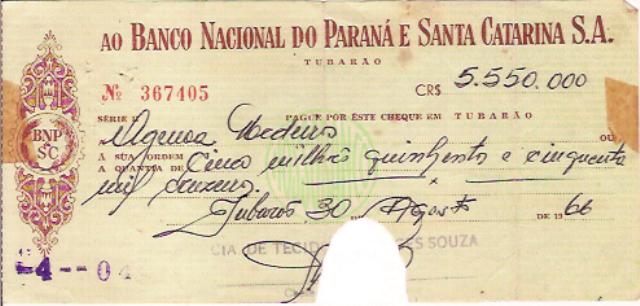 AO BANCO NACIONAL DO PARANÁ E SANTA CATARINA S.A.
TUBARÃO
Nº 367405 CR$ 5.550.000
SÉRIE PAGUE POR ÊSTE CHEQUE EM TUBARÃO
Medeiros OU
À SUA ORDEM
A QUANTIA DE Cinco milhões quinhentos e cinquenta
mil cruzeiros.
BNP
SC
Tubarão, 30 Agosto DE 1966
CIA. DE TECID ES SOUZA
4--04